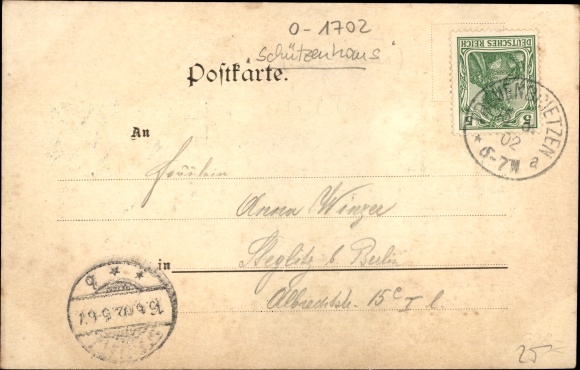 0-1702
"Schützenhaus"
Postkarte.
DEUTSCHES REICH
5 5
02
* 6-7N a
An
Fräulein
Anna Winzer
in Steglitz b. Berlin
Albrechtstr. 15c I l.
25,-